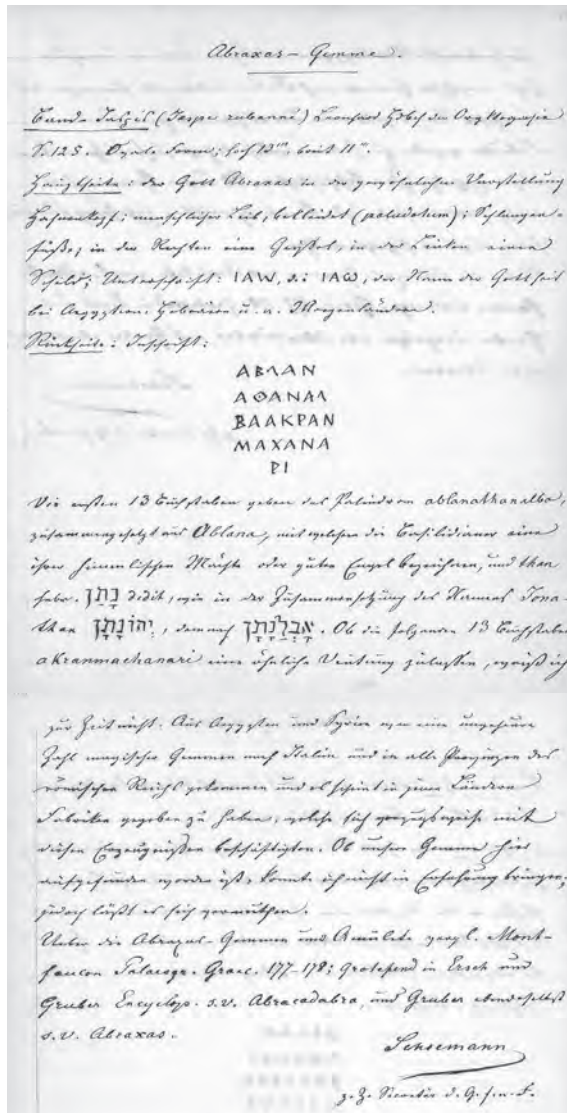 Abraxas – Gemme.
Band-Jaspis (Jaspe rubanné) Leonhard Handbuch der Oryktognosie
S. 125. Ovale Form; hoch 13''', breit 11'''.
Hauptseite: der Gott Abraxas in der gewöhnlichen Vorstellung
Hahnenkopf; menschlicher Leib, bekleidet (paludatum); Schlangen-
füße; in der Rechten eine Geißel, in der Linken einen
Schild; Unterschrift: IAW, d.i. IAω, der Name der Gottheit
bei Aegyptern. Hebräern u. a. Morgenländern.
Rückseite: Inschrift:
ΑΒΛΑΝ
ΑΘΑΝΑΛ
ΒΑΑΚΡΑΝ
ΜΑΧΑΝΑ
ΡΙ
Die ersten 13 Buchstaben geben das Palindrom ablanathanalba,
zusammengesetzt aus Ablana, mit welchem die Basilidianer eine
ihrer himmlischen Mächte oder guten Engel bezeichnen, und than
hebr. נָתַן dedit, wie in der Zusammensetzung des Namens Jona-
than יְהוֹנָתָן, demnach אָבְלָנָתָן. Ob die folgenden 13 Buchstaben
akranmachanari eine ähnliche Deutung zulassen, weiß ich
zur Zeit nicht. Aus Aegypten und Syrien eine ungeheure
Zahl magischer Gemmen nach Italien und in alle Provinzen des
römischen Reichs gekommen und es scheint in jenen Ländern
Fabriken gegeben zu haben, welche sich vorzugsweise mit
diesen Erzeugnißen beschäftigten. Ob unsere Gemme hier
aufgefunden worden ist, konnte ich nicht in Erfahrung bringen,
jedoch läßt es sich vermuthen.
Ueber die Abraxas-Gemmen und Amulete vergl. Mont-
faucon Palaeogr. Graec. 177–178; Grotefend in Ersch und
Gruber Encyclop. s.v. Abracadabra, und Gruber ebendaselbst
s.v. Abraxas.
z. Z. Secretär d. G. f. n. F.